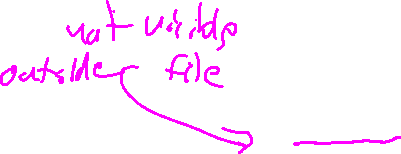 not visible
outside file